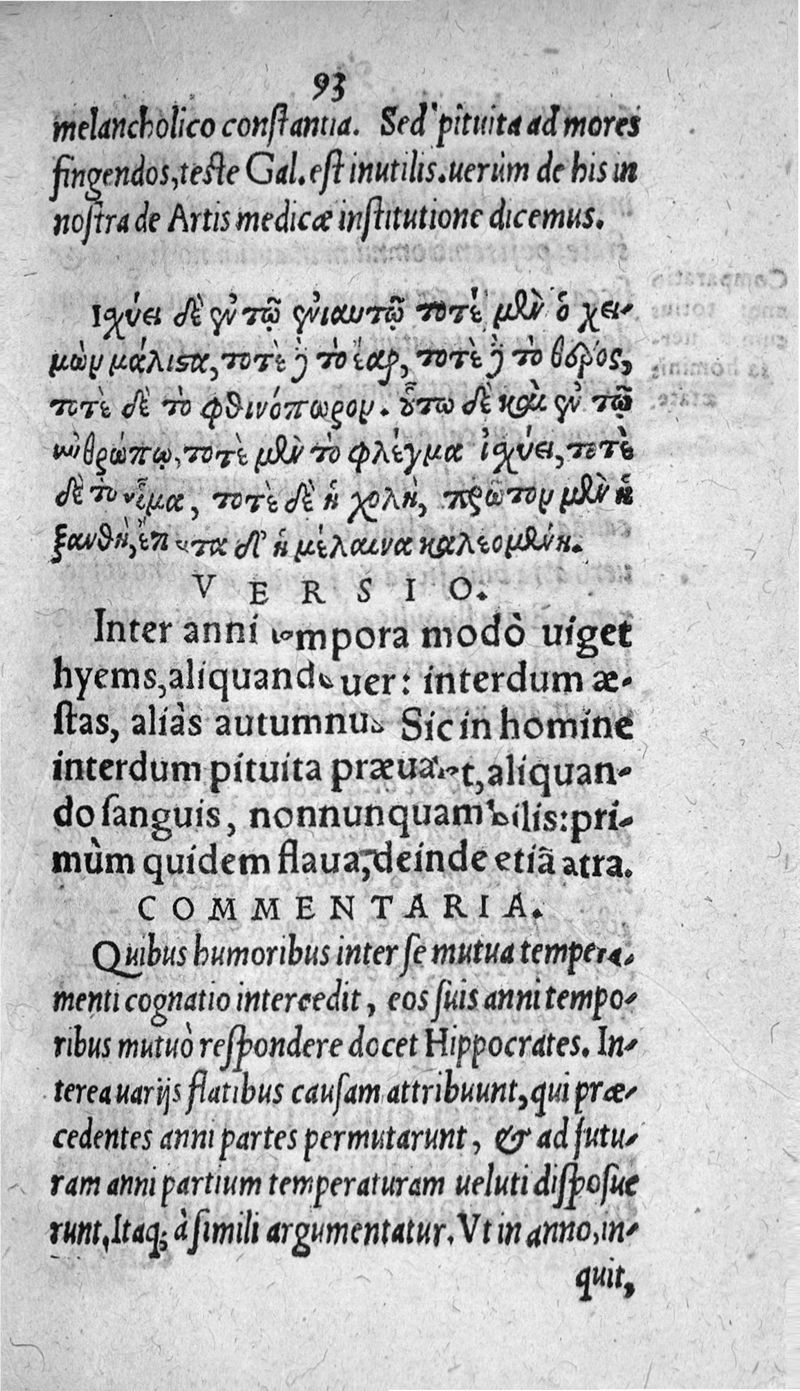 93
melancholico constantia. Sed pituita ad mores
fingendos, teste Gal. est inutilis. uerùm de his in
nostra de Artis medicæ institutione dicemus.
Ἰχύει δὲ ἐν τῷ ἐνιαυτῷ ποτὲ μὲν ὁ χει-
μὼν μάλιστα, ποτὲ δὲ τὸ ἔαρ, ποτὲ δὲ τὸ θέρος,
ποτὲ δὲ τὸ φθινόπωρον. οὕτω δὲ καὶ ἐν τῷ
ἀνθρώπῳ, ποτὲ μὲν τὸ φλέγμα ἰχύει, ποτὲ
δὲ τὸ αἷμα, ποτὲ δὲ ἡ χολὴ, πρῶτον μὲν ἡ
ξανθὴ, ἔπειτα δ' ἡ μέλαινα καλεομένη.
VERSIO.
Inter anni tempora modò uiget
hyems, aliquando uer: interdum æ-
stas, aliàs autumnus. Sic in homine
interdum pituita præualet, aliquan-
do sanguis, nonnunquam bilis: pri-
mùm quidem flaua, deinde etiã atra.
COMMENTARIA.
Quibus humoribus inter se mutua tempera-
menti cognatio intercedit, eos suis anni tempo-
ribus mutuò respondere docet Hippocrates. In-
terea uarijs flatibus causam attribuunt, qui præ-
cedentes anni partes permutarunt, & ad futu-
ram anni partium temperaturam ueluti disposue
runt. Itaq; à simili argumentatur. Vt in anno, in-
quit,